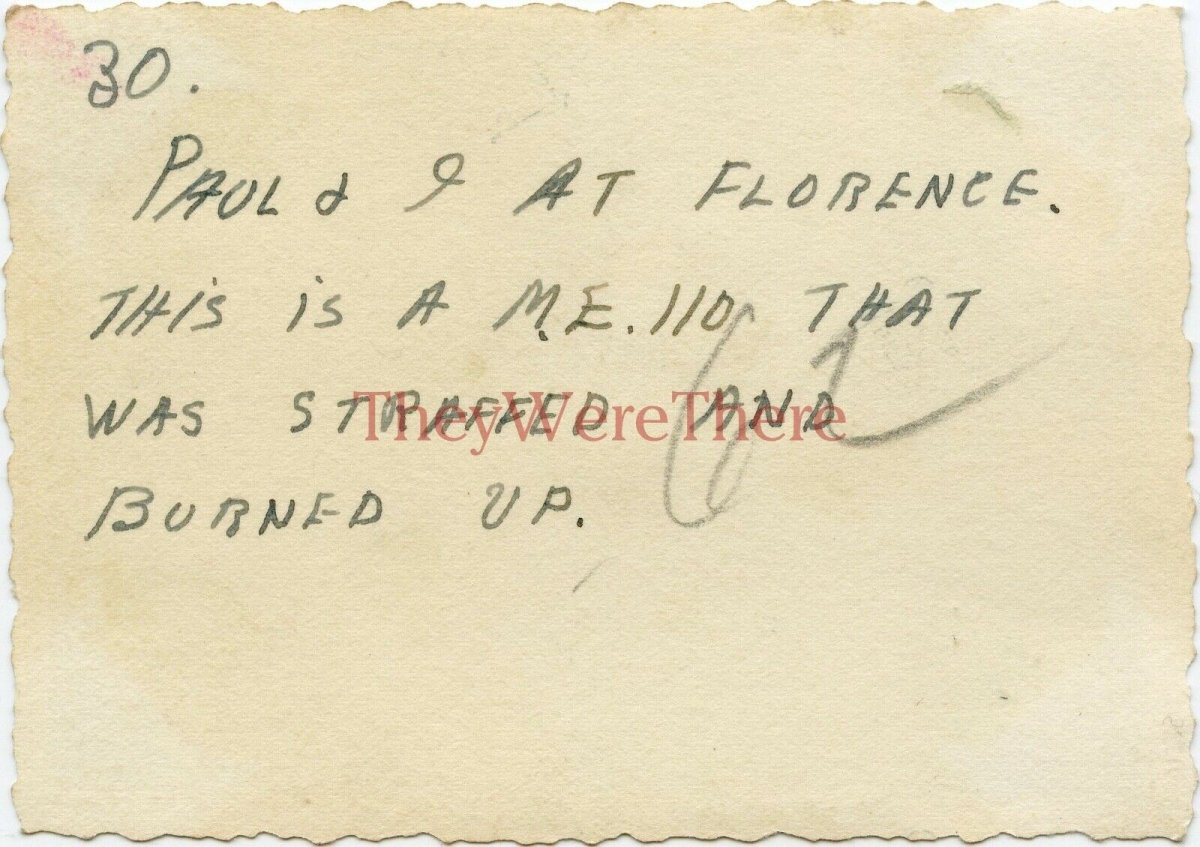 30.
PAUL & I AT FLORENCE.
THIS IS A M.E. 110 THAT
WAS STRAFFED AND
BURNED UP.
TheyWereThere